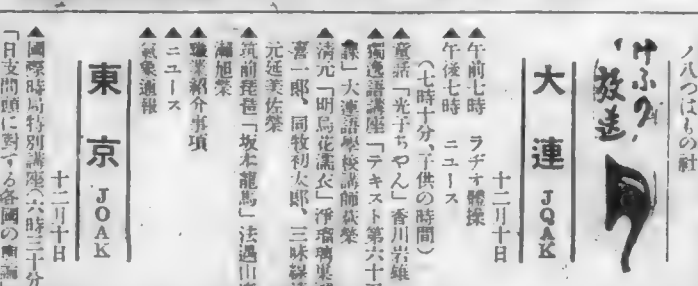 ノ八つはもの社
けふの放送
大連 JQAK
十二月十日
▲午前七時 ラヂオ體操
▲午後七時 ニュース
(七時十分、子供の時間)
▲童話「光子ちやん」香川岩雄
▲獨逸語講座「テキスト第六十
課」大連語學校講師萩榮
▲清元「明烏花濡衣」淨瑠璃
喜一郎、同牧初太郎、三味線
元延美佐榮
▲筑前琵琶「坂本龍馬」法過山
瀨旭榮
▲職業紹介事項
▲ニュース
▲氣象通報
東京 JOAK
十二月十日
▲國際時局特別講座(六時三十分
「日支問題に對する各國の